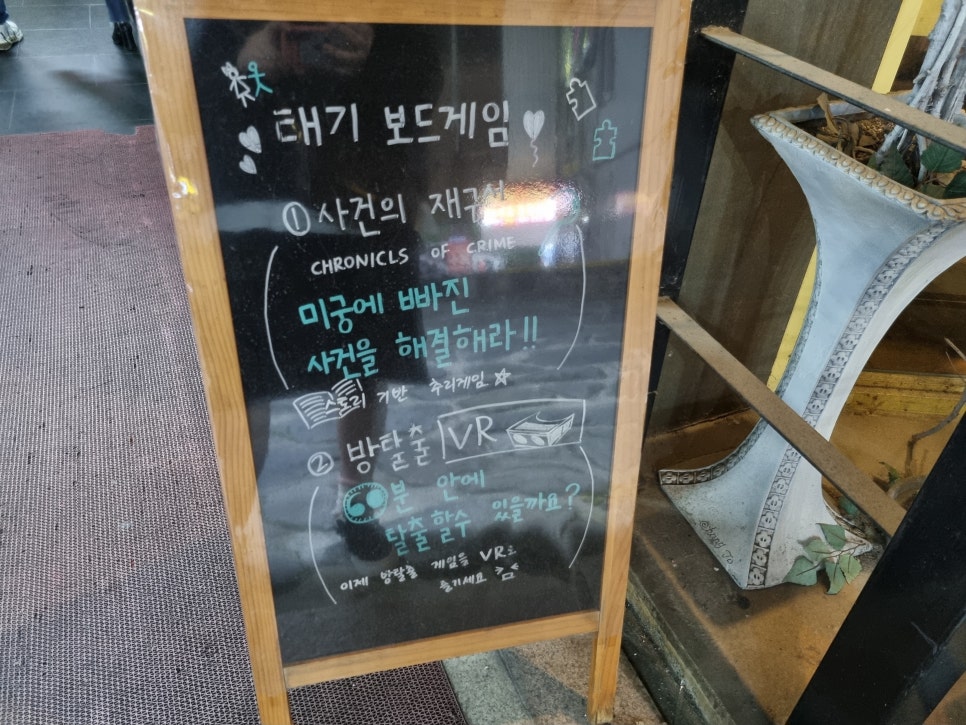 태기 보드게임
① 사건의 재구성
CHRONICLS OF CRIME
미궁에 빠진
사건을 해결해라!!
스토리 기반 추리게임
② 방탈출 VR
60분 안에
탈출할수 있을까요?
이제 방탈출 게임을 VR로
즐기세요